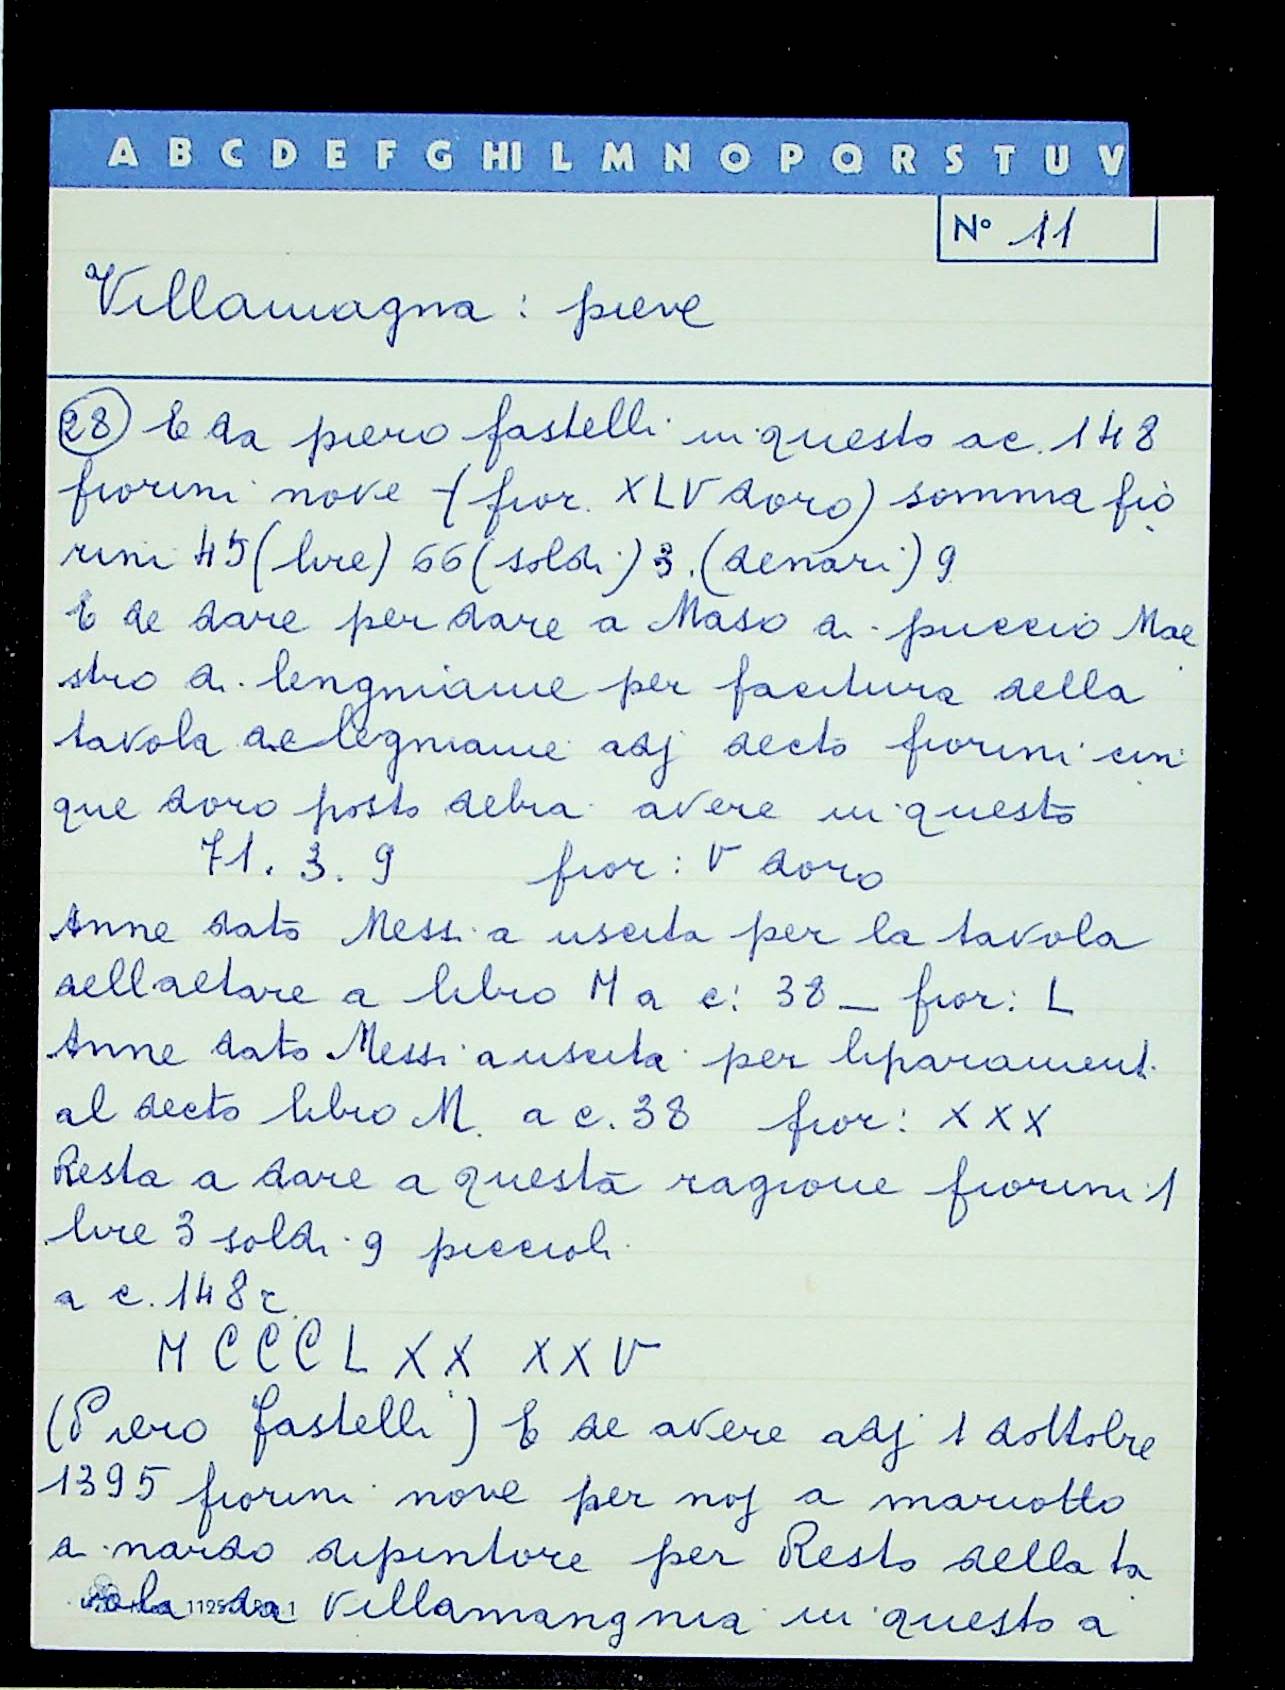 A B C D E F G HI L M N O P Q R S T U V
N° 11
Villamagna : pieve
28 E da piero fastelli in questo a c. 148
fiorini nove (fior. XLV doro) somma fio
rini 45 (lire) 66 (soldi) 3. (denari) 9
E de dare per dare a Maso di puccio Mae
stro di lengniame per facitura della
tavola de legniame adj decto fiorini cin
que doro posto debia avere in questo
71. 3. 9 fior: V doro
Anne dato Messi a uscita per la tavola
dellaltare a libro M a c: 38 _ fior: L
Anne dato Messi a uscita per liparamenti
al decto libro M. a c. 38 fior: XXX
Resta a dare a questa ragione fiorini 1
lire 3 soldi 9 piccioli
a c. 148 r.
MCCCLXX XXV
(Piero fastelli) E de avere adj 1 dottobre
1395 fiorini nove per noj a mariotto
di nardo dipintore per Resto della ta
vola da Villamangnia in questo a